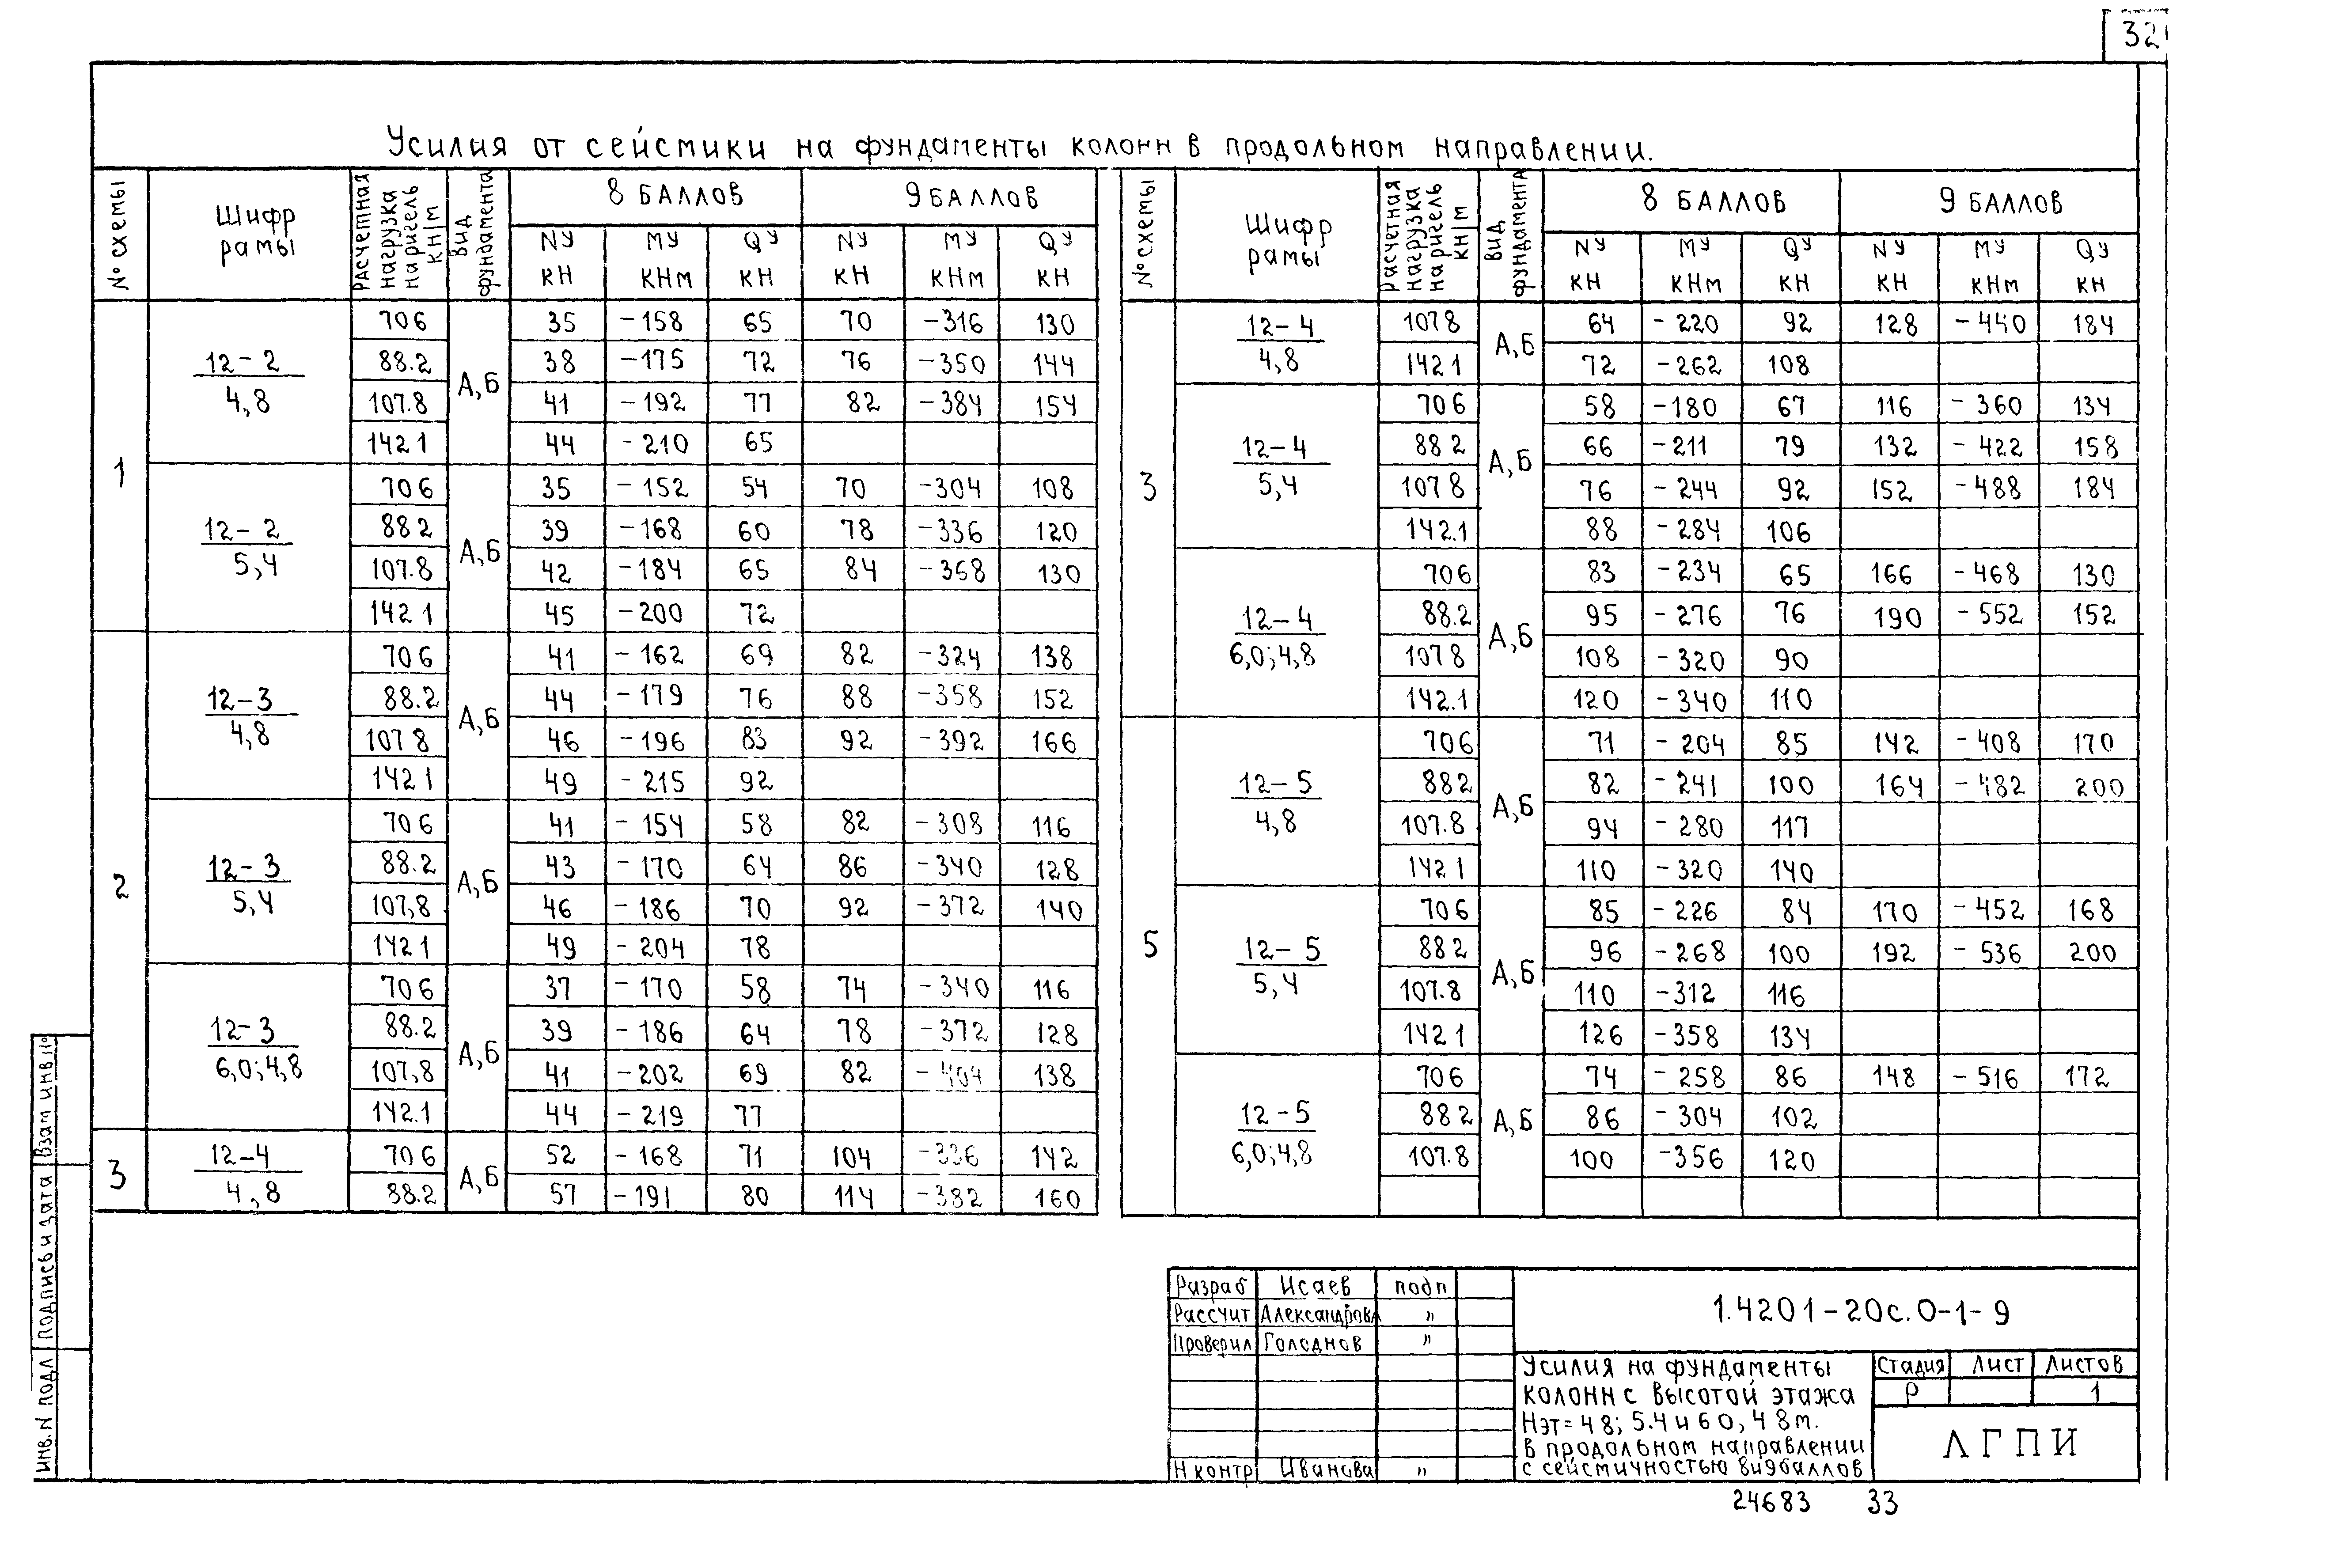 32
Усилия от сейсмики на фундаменты колонн в продольном направлении.
№ схемы | Шифр рамы | Расчетная нагрузка на ригель кн|м | Вид фундамента | 8 баллов | 9 баллов
NУ кн | МУ кнм | QУ кн | NУ кн | МУ кнм | QУ кн
1
12-2 / 4,8 | А,Б
706 | 35 | -158 | 65 | 70 | -316 | 130
88.2 | 38 | -175 | 72 | 76 | -350 | 144
107.8 | 41 | -192 | 77 | 82 | -384 | 154
1421 | 44 | -210 | 65
12-2 / 5,4 | А,Б
706 | 35 | -152 | 54 | 70 | -304 | 108
882 | 39 | -168 | 60 | 78 | -336 | 120
107.8 | 42 | -184 | 65 | 84 | -368 | 130
1421 | 45 | -200 | 72
2
12-3 / 4,8 | А,Б
706 | 41 | -162 | 69 | 82 | -324 | 138
88.2 | 44 | -179 | 76 | 88 | -358 | 152
1078 | 46 | -196 | 83 | 92 | -392 | 166
1421 | 49 | -215 | 92
12-3 / 5,4 | А,Б
706 | 41 | -154 | 58 | 82 | -308 | 116
88.2 | 43 | -170 | 64 | 86 | -340 | 128
107,8 | 46 | -186 | 70 | 92 | -372 | 140
142.1 | 49 | -204 | 78
12-3 / 6,0;4,8 | А,Б
706 | 37 | -170 | 58 | 74 | -340 | 116
88.2 | 39 | -186 | 64 | 78 | -372 | 128
107,8 | 41 | -202 | 69 | 82 | -404 | 138
142.1 | 44 | -219 | 77
3
12-4 / 4,8 | А,Б
706 | 52 | -168 | 71 | 104 | -336 | 142
88.2 | 57 | -191 | 80 | 114 | -382 | 160
№ схемы | Шифр рамы | Расчетная нагрузка на ригель кн|м | Вид фундамента | 8 баллов | 9 баллов
NУ кн | МУ кнм | QУ кн | NУ кн | МУ кнм | QУ кн
3
12-4 / 4,8 | А,Б
1078 | 64 | -220 | 92 | 128 | -440 | 184
1421 | 72 | -262 | 108
12-4 / 5,4 | А,Б
706 | 58 | -180 | 67 | 116 | -360 | 134
882 | 66 | -211 | 79 | 132 | -422 | 158
1078 | 76 | -244 | 92 | 152 | -488 | 184
142.1 | 88 | -284 | 106
12-4 / 6,0;4,8 | А,Б
706 | 83 | -234 | 65 | 166 | -468 | 130
88.2 | 95 | -276 | 76 | 190 | -552 | 152
1078 | 108 | -320 | 90
142.1 | 120 | -340 | 110
5
12-5 / 4,8 | А,Б
706 | 71 | -204 | 85 | 142 | -408 | 170
882 | 82 | -241 | 100 | 164 | -482 | 200
107.8 | 94 | -280 | 117
1421 | 110 | -320 | 140
12-5 / 5,4 | А,Б
706 | 85 | -226 | 84 | 170 | -452 | 168
882 | 96 | -268 | 100 | 192 | -536 | 200
107.8 | 110 | -312 | 116
1421 | 126 | -358 | 134
12-5 / 6,0;4,8 | А,Б
706 | 74 | -258 | 86 | 148 | -516 | 172
882 | 86 | -304 | 102
107.8 | 100 | -356 | 120
Взам инв №
Подпись и дата
Инв. N подл
Разраб | Исаев | подп
Рассчит | Александрова | "
Проверил | Голоднов | "
Н контр | Иванова | "
1.4201-20с.0-1-9
Усилия на фундаменты
колонн с высотой этажа
Нэт=48; 5.4 и 60, 48м.
в продольном направлении
с сейсмичностью 8и9баллов
Стадия | Лист | Листов
Р | 1
ЛГПИ
24683 33